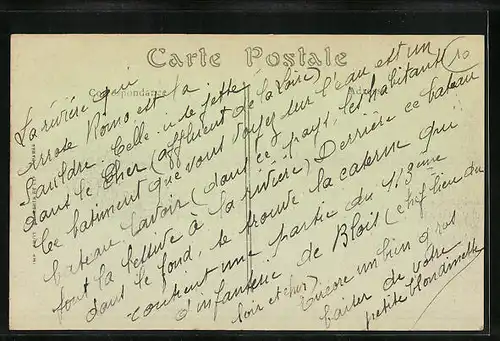 Carte Postale
Correspondance
Adresse
La rivière qui
arrose Romo est la
Sauldre. Celle-ci se jette
dans le Cher (affluent de la Loire)
Ce bâtiment que vous voyez sur l'eau est un
bateau lavoir (dans ce pays, les habitants
font la lessive à la rivière) Derrière ce bateau
dans le fond, se trouve la caserne qui
contient une partie du 113ème
d'infanterie de Blois (chef lieu du
loir et cher)
Encore un bien gros
baiser de votre
petite blondinette